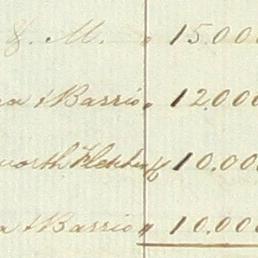 & M. " 15.00
a & Barrio " 12.000
worth Fletcher 10.00
a & Barrio " 10.000